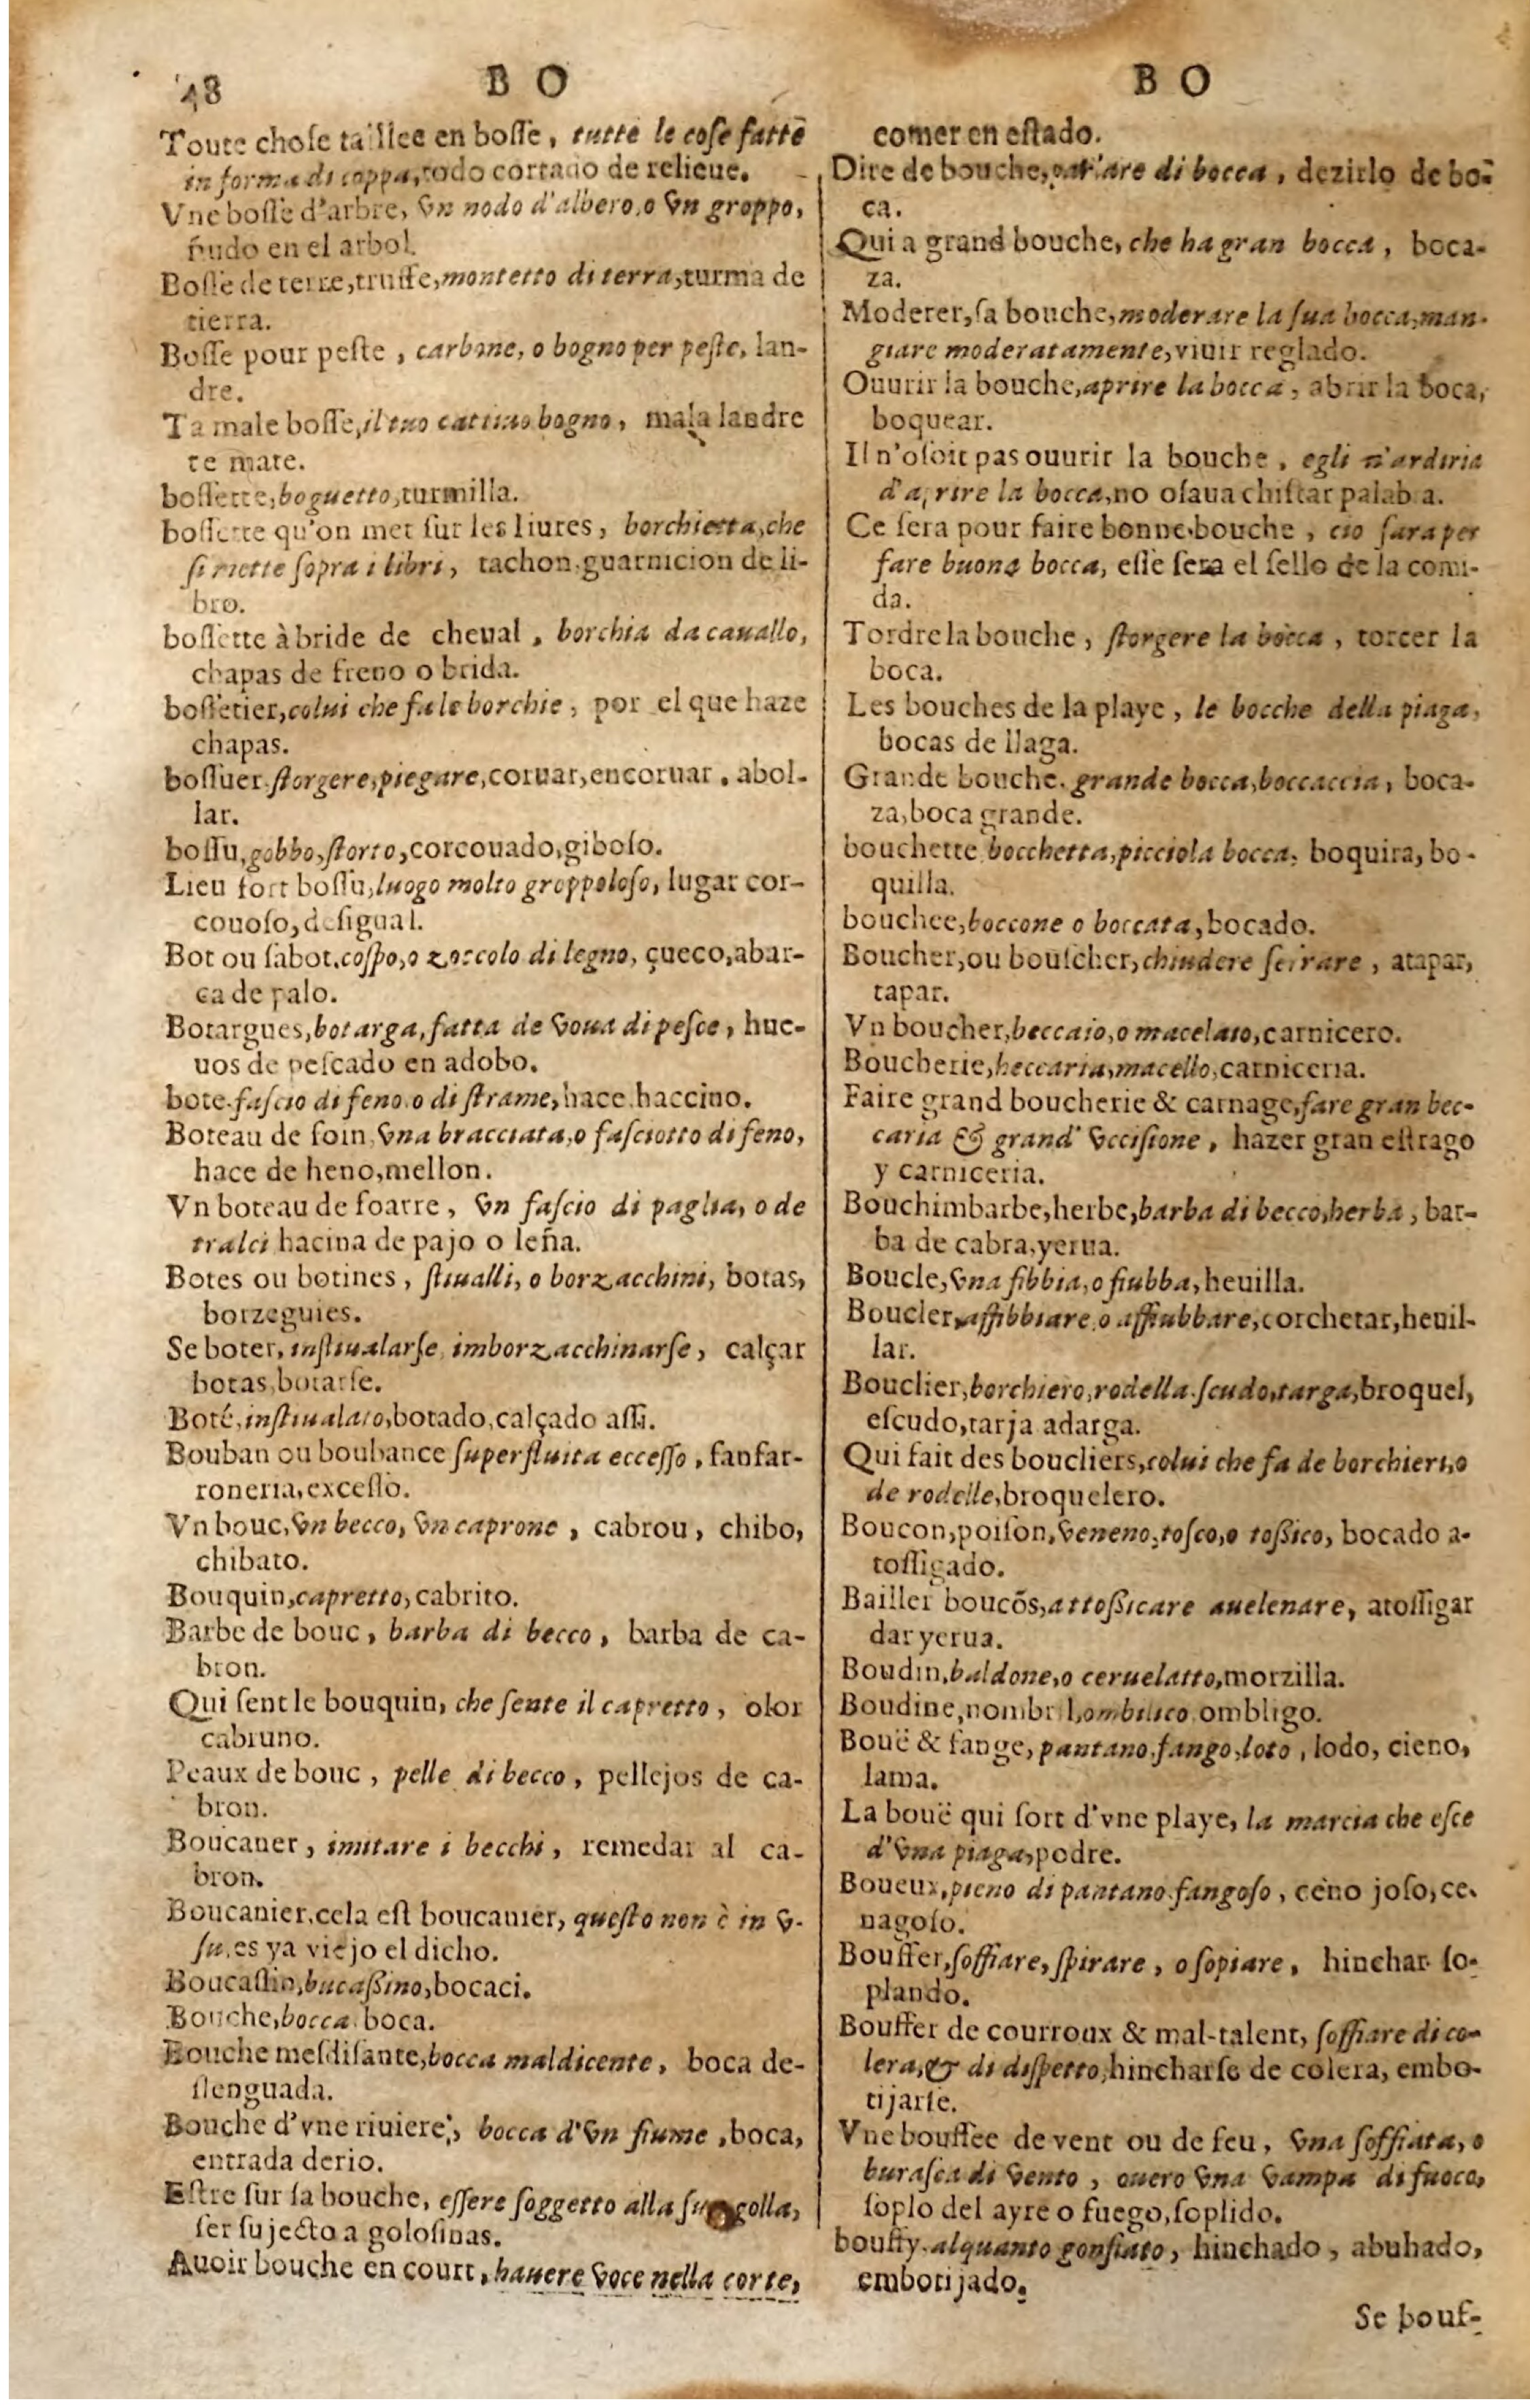 48 B O
Toute choſe taillee en boſſe, tutte le coſe fatte
in forma di coppa, todo cortado de relieue.
Vne boſſe d'arbre, vn nodo d'albero, o vn groppo,
ñudo en el arbol.
Boſſe de terre, truffe, montetto di terra, turma de
tierra.
Boſſe pour peſte, carbone, o bogno per peſte, lan-
dre.
Ta male boſſe, il tuo cattiuo bogno, mala landre
te mate.
boſſette, boguetto, turmilla.
boſſette qu'on met ſur les liures, borchietta, che
ſi mette ſopra i libri, tachon, guarnicion de li-
bro.
boſſette à bride de cheual, borchia da cauallo,
chapas de freno o brida.
boſſetier, colui che fa le borchie, por el que haze
chapas.
boſſuer, ſtorgere, piegare, coruar, encoruar, abol-
lar.
boſſu, gobbo, ſtorto, corcouado, giboſo.
Lieu fort boſſu, luogo molto groppoloſo, lugar cor-
couoſo, deſigual.
Bot ou ſabot, coſpo, o zoccolo di legno, çueco, abar-
ca de palo.
Botargues, botarga, fatta de voua di peſce, hue-
uos de peſcado en adobo.
bote, faſcio di feno o di ſtrame, hace, haccino.
Boteau de foin, vna bracciata, o faſciotto di feno,
hace de heno, mellon.
Vn boteau de foarre, vn faſcio di paglia, o de
tralci hacina de pajo o leña.
Botes ou botines, ſtiualli, o borzacchini, botas,
borzeguies.
Se boter, inſtiualarſe, imborzacchinarſe, calçar
botas, botarſe.
Boté, inſtiualato, botado, calçado aſſi.
Bouban ou boubance ſuperfluita ecceſſo, fanfar-
roneria, exceſſo.
Vn bouc, vn becco, vn caprone, cabrou, chibo,
chibato.
Bouquin, capretto, cabrito.
Barbe de bouc, barba di becco, barba de ca-
bron.
Qui ſent le bouquin, che ſente il capretto, olor
cabruno.
Peaux de bouc, pelle di becco, pellejos de ca-
bron.
Boucaner, imitare i becchi, remedar al ca-
bron.
Boucanier, cela eſt boucanier, queſto non è in v-
ſu, es ya viejo el dicho.
Boucaſſin, bucaßino, bocaci.
Bouche, bocca, boca.
Bouche meſdiſante, bocca maldicente, boca de-
ſlenguada.
Bouche d'vne riuiere, bocca d'vn fiume, boca,
entrada derio.
Eſtre ſur ſa bouche, eſſere ſoggetto alla ſua golla,
ſer ſujecto a goloſinas.
Auoir bouche en court, hauere voce nella corte,
B O
comer en eſtado.
Dire de bouche, parlare di bocca, dezirlo de bo-
ca.
Qui a grand bouche, che ha gran bocca, boca-
za.
Moderer, ſa bouche, moderare la ſua bocca, man-
giare moderatamente, viuir reglado.
Ouurir la bouche, aprire la bocca, abrir la boca,
boquear.
Il n'oſoit pas ouurir la bouche, egli n'ardiria
d'aprire la bocca, no oſaua chiſtar palabra.
Ce ſera pour faire bonne bouche, cio ſara per
fare buona bocca, eſſe ſera el ſello de la comi-
da.
Tordre la bouche, ſtorgere la bocca, torcer la
boca.
Les bouches de la playe, le bocche della piaga,
bocas de llaga.
Grande bouche, grande bocca, boccaccia, boca-
za, boca grande.
bouchette bocchetta, picciola bocca, boquita, bo-
quilla.
bouchee, boccone o boccata, bocado.
Boucher, ou bouſcher, chiudere ſerrare, atapar,
tapar.
Vn boucher, beccaio, o macelaio, carnicero.
Boucherie, beccaria, macello, carniceria.
Faire grand boucherie & carnage, fare gran bec-
caria & grand' vcciſione, hazer gran eſtrago
y carniceria.
Bouchimbarbe, herbe, barba di becco, herba, bar-
ba de cabra, yerua.
Boucle, vna fibbia, o fiubba, heuilla.
Boucler, affibbiare o affiubbare, corchetar, heuil-
lar.
Bouclier, borchiero, rodella, ſcudo, targa, broquel,
eſcudo, tarja adarga.
Qui fait des boucliers, colui che fa de borchieri, o
de rodelle, broquelero.
Boucon, poiſon, veneno, toſco, o toßico, bocado a-
toſſigado.
Bailler boucõs, attoßicare auelenare, atoſſigar
dar yerua.
Boudin, baldone, o ceruelatto, morzilla.
Boudine, nombril, ombilico ombligo.
Bouë & fange, pantano, fango, loto, lodo, cieno,
lama.
La bouë qui ſort d'vne playe, la marcia che eſce
d'vna piaga, podre.
Boueux, pieno di pantano, fangoſo, ceno joſo, ce-
nagoſo.
Bouffer, ſoffiare, ſpirare, o ſopiare, hinchar ſo-
plando.
Bouffer de courroux & mal-talent, ſoffiare di co-
lera, & di diſpetto, hincharſe de colera, embo-
tijarſe.
Vne bouffee de vent ou de feu, vna ſoffiata, o
buraſca di vento, ouero vna vampa di fuoco,
ſoplo del ayre o fuego, ſoplido.
bouffy, alquanto gonfiato, hinchado, abuhado,
embotijado.
Se bouf-